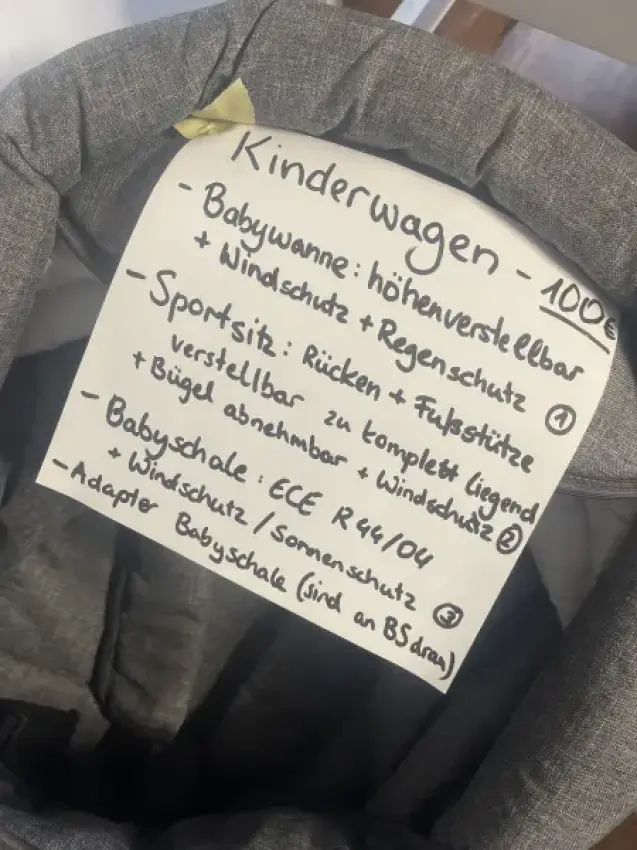 Kinderwagen - 100€
- Babywanne: höhenverstellbar
+ Windschutz + Regenschutz ①
- Sportsitz: Rücken + Fußstütze
verstellbar zu komplett liegend
+ Bügel abnehmbar + Windschutz ②
- Babyschale: ECE R44/04
+ Windschutz / Sonnenschutz ③
- Adapter Babyschale (sind an BS dran)